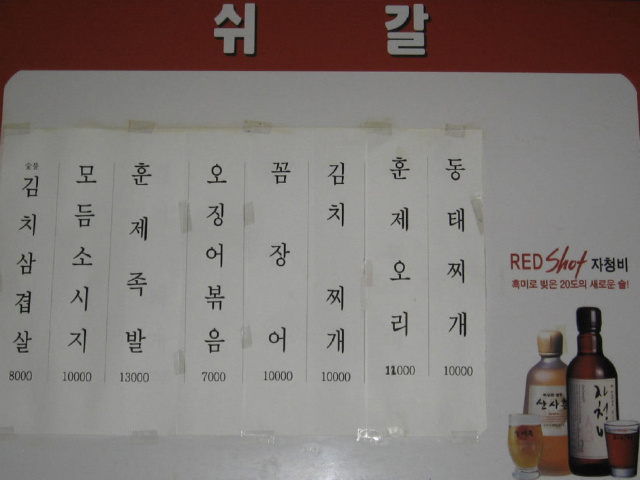 쉬 갈
숯불
김치삼겹살
8000
모듬소시지
10000
훈제족발
13000
오징어볶음
7000
꼼장어
10000
김치찌개
10000
훈제오리
동태찌개
10000
RED Shot 자청비
흑미로 빚은 20도의 새로운 술!
산사춘
자청비